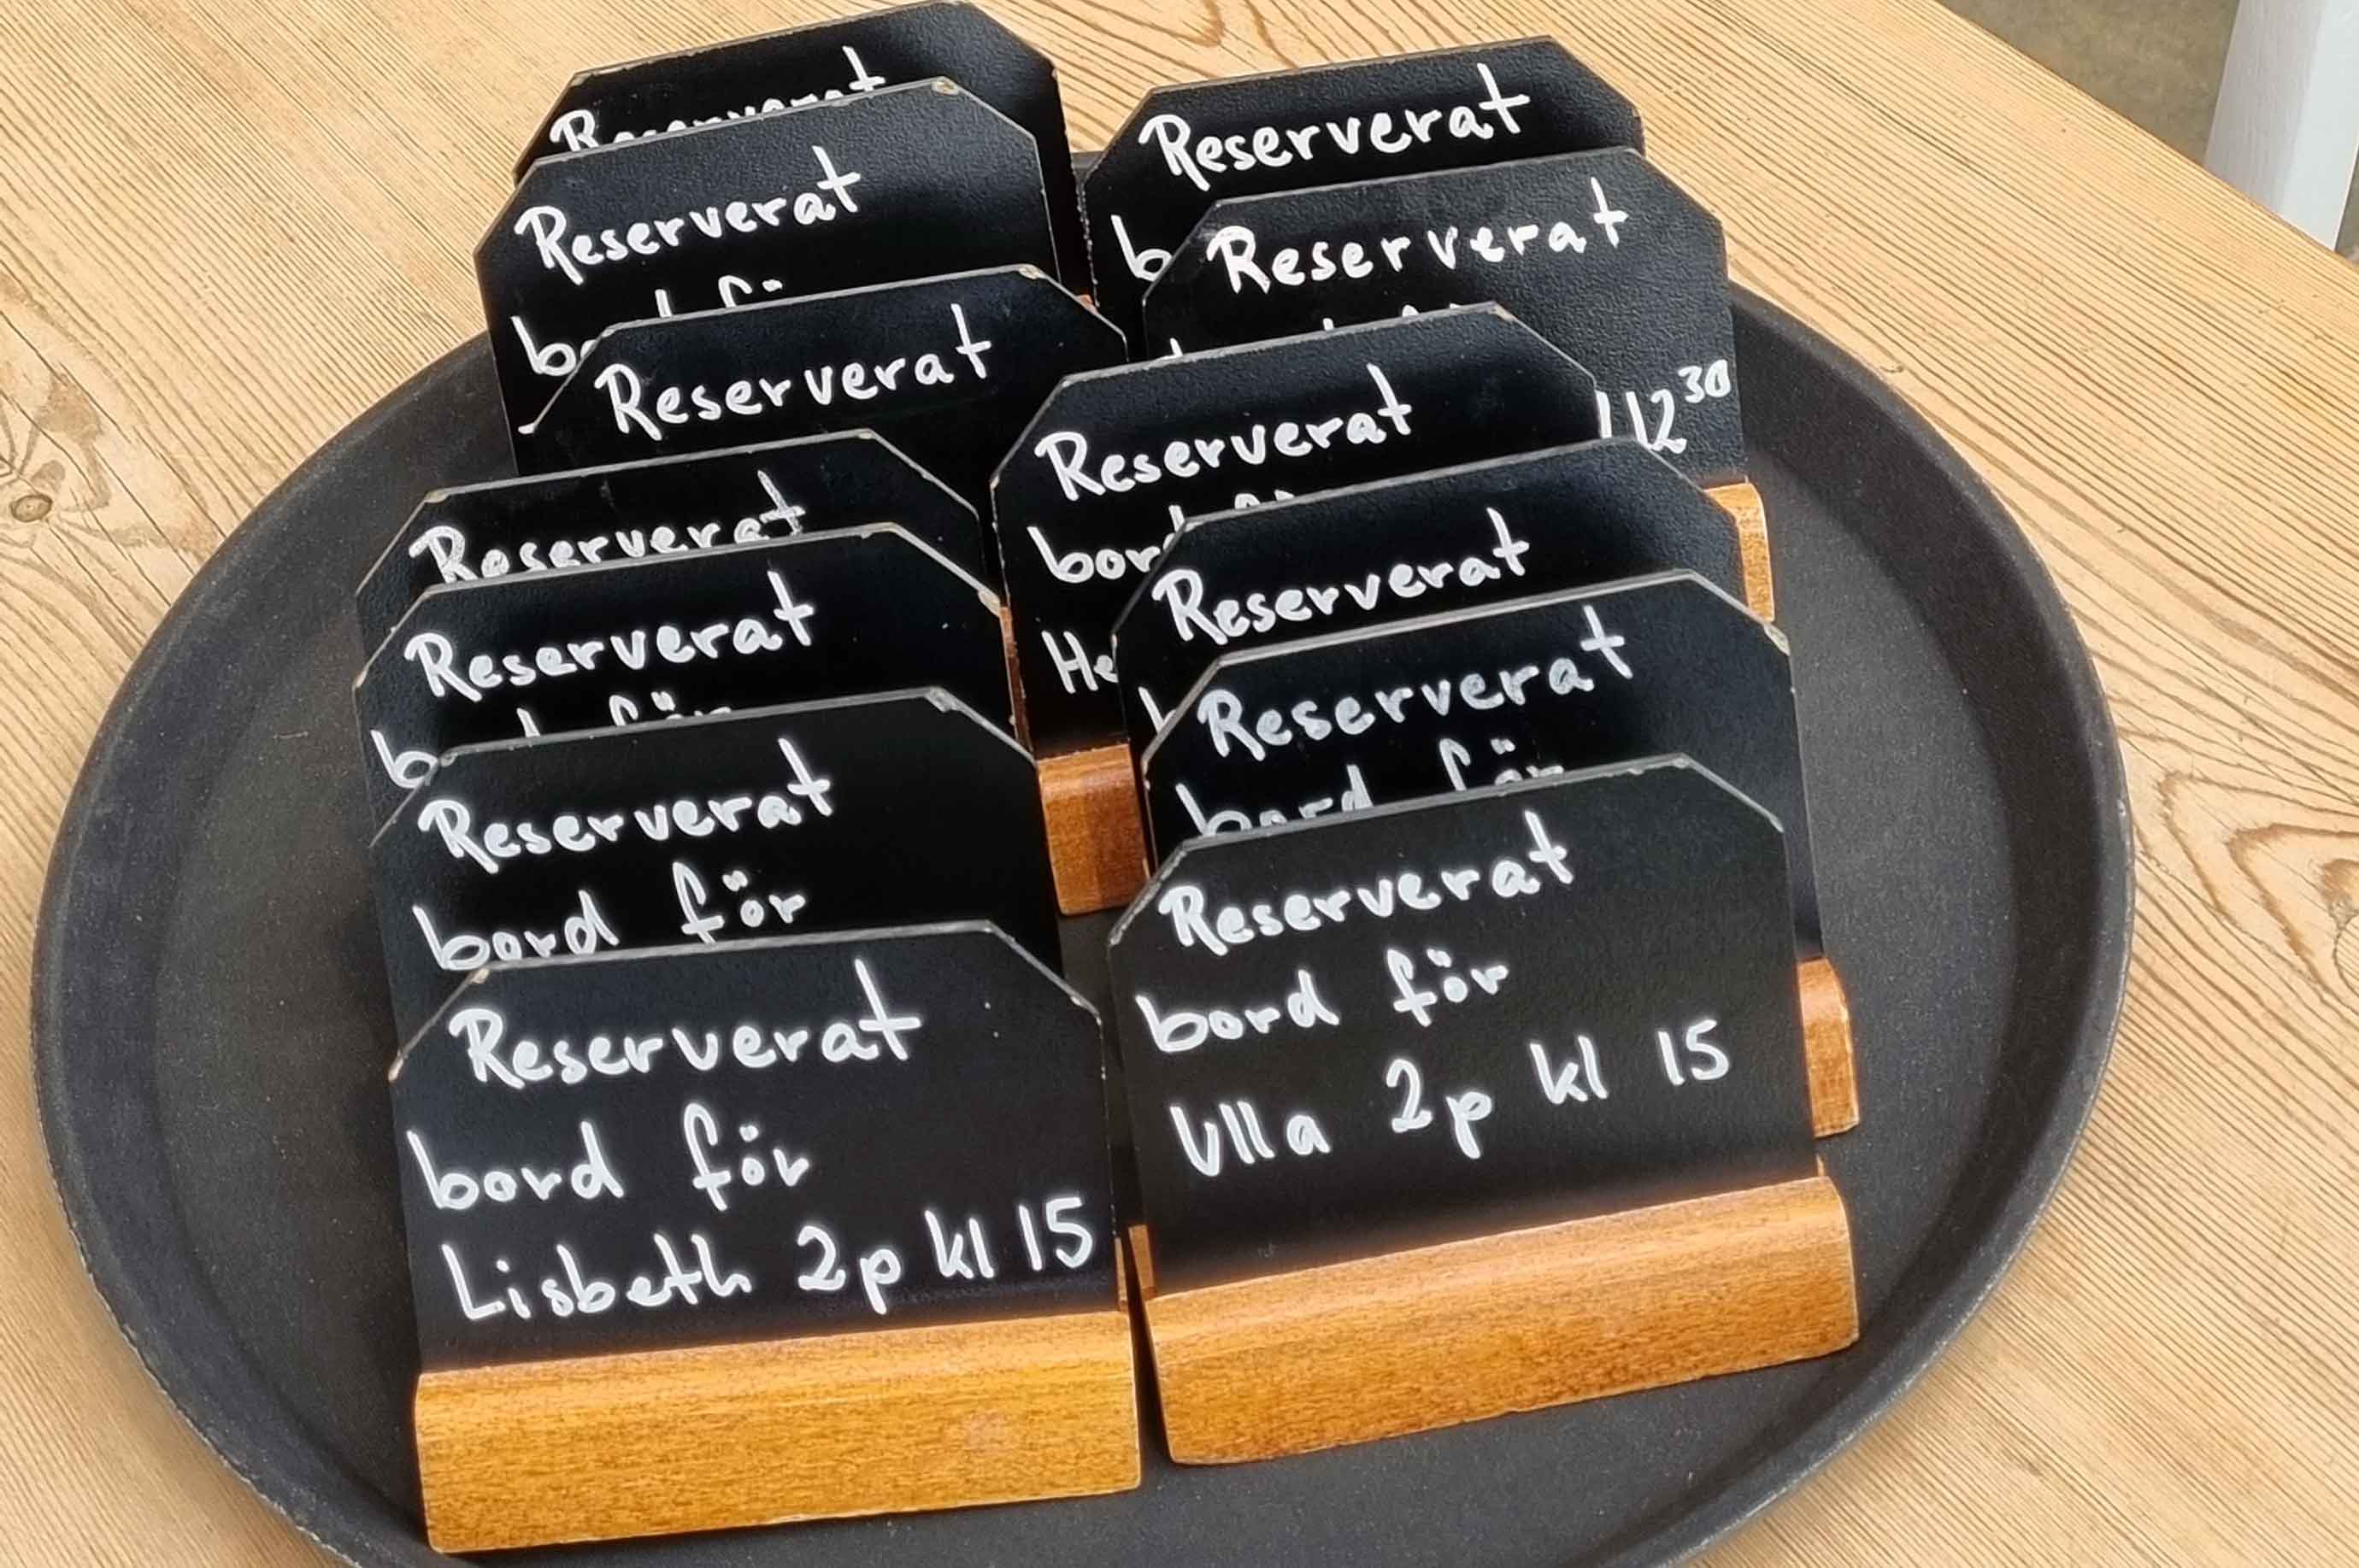 Reserverat
Reserverat
Reserverat
Reserverat
Reserverat
Reserverat
bord för
Reserverat
bord för
Lisbeth 2p kl 15
Reserverat
Reserverat
12³⁰
Reserverat
bord
Reserverat
Reserverat
bord för
Reserverat
bord för
Ulla 2p kl 15